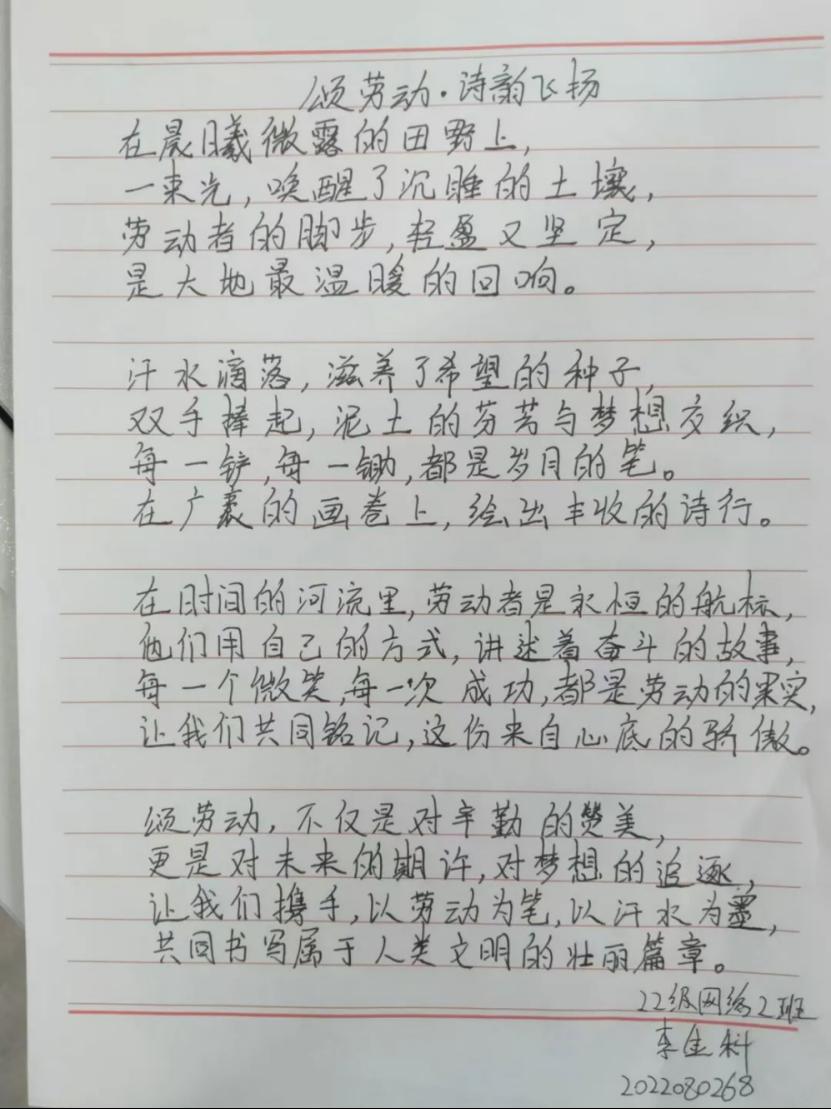 颂劳动·诗韵飞扬
在晨曦微露的田野上,
一束光,唤醒了沉睡的土壤,
劳动者的脚步,轻盈又坚定,
是大地最温暖的回响。
汗水滴落,滋养了希望的种子,
双手捧起,泥土的芬芳与梦想交织,
每一铲,每一锄,都是岁月的笔。
在广袤的画卷上,绘出丰收的诗行。
在时间的河流里,劳动者是永恒的航标,
他们用自己的方式,讲述着奋斗的故事,
每一个微笑,每一次成功,都是劳动的果实,
让我们共同铭记,这份来自心底的骄傲。
颂劳动,不仅是对辛勤的赞美,
更是对未来的期许,对梦想的追逐,
让我们携手,以劳动为笔,以汗水为墨,
共同书写属于人类文明的壮丽篇章。
22级网络2班
李生科
2022080268